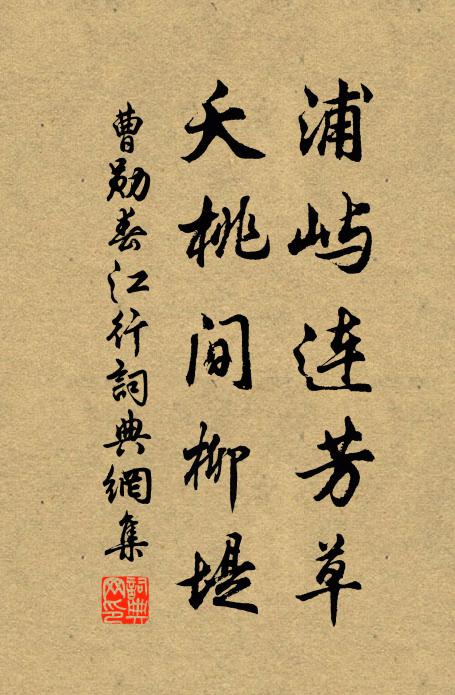 浦屿连芳草
夭桃间柳堤
曹勋春江行詞典網集
詞典网印